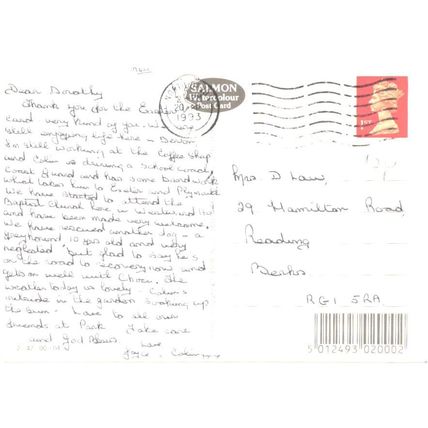 Dear Dorothy
Thank you for the Easter
card very kind of you. We are
still enjoying life here -
I'm still working at the Coffee Shop
and Colin is driving a school
and has some
which takes him to Exeter and Plymouth
We have started to attend the
Baptist Church here in
and have been made very welcome.
We have rescued another dog - a
greyhound 10 yrs old and very
neglected but glad to say he's
on the road to recovery now and
gets on well with The
weather today is lovely - Colin's
outside in the garden soaking up
the sun - Love to all our
friends at Park Take care
and God Bless.
Love
Joyce Colin
SALMON
Watercolour
Post Card
1993
1ST
Mrs. D Law,
29 Hamilton Road,
Reading
Berks
RG1 5RA
5 012493 020002